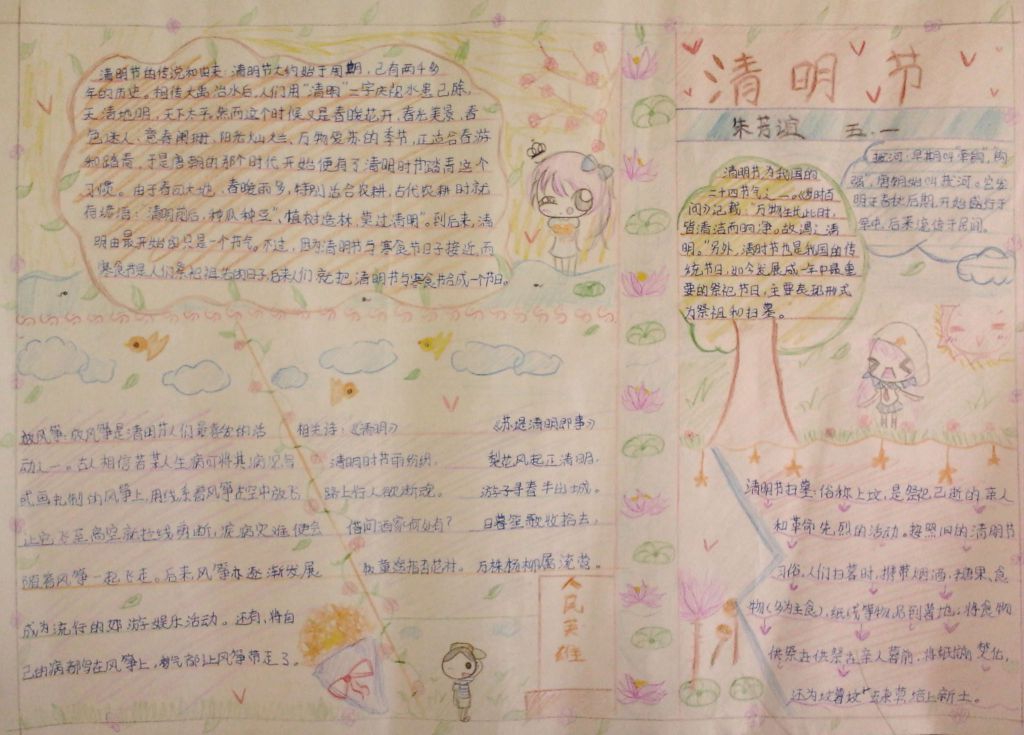 清明节
朱芳谊 五.一
清明节的传说和由来:清明节大约始于周朝,已有两千多
年的历史。相传大禹治水后,人们用“清明”一字庆祝水患已除,
天清地明,天下太平。然而这个时候又是春暖花开,春光美景,春
色迷人,意春阑珊,阳光灿烂、万物复苏的季节,正适合春游
和踏青,于是唐朝的那个时代开始便有了清明时节踏青这个
习惯。由于春回大地,春暖雨多,特别适合农耕,古代农耕时就
有谚语:“清明前后,种瓜种豆”,“植树造林,莫过清明”。到后来,清
明由最开始的只是一个节气。不过,因为清明节与寒食节日子接近,而
寒食节是人们祭祀祖先的日子后来人们就把清明节与寒食节合成一个节日。
清明节为我国的
二十四节气之一。《岁时百
问》记载:“万物生长此时,
皆清洁而明净。故谓之清
明。”另外,清明节也是我国的传
统节日,如今发展成一年中最重
要的祭祀节日,主要表现形式
为祭祖和扫墓。
拔河:早期叫“牵钩”,钩
强”,唐朝始叫拔河。它发
明于春秋后期,开始盛行于
军中,后来流传于民间。
放风筝:放风筝是清明节人们最喜爱的活
动之一。古人相信若某人生病可将其病况写
或画扎制的风筝上,用线系着风筝在空中放飞
让它飞至高空就赶线剪断,疾病灾难便会
随着风筝一起飞走。后来风筝亦逐渐发展
成为流行的郊游娱乐活动。还有,将自
己的病都写在风筝上,晦气都让风筝带走了。
相关诗:《清明》
清明时节雨纷纷,
路上行人欲断魂。
借问酒家何处有?
牧童遥指杏花村。
《苏堤清明即事》
梨花风起正清明,
游子寻春半出城。
日暮笙歌收拾去,
万株杨柳属流莺。
人民英雄
清明节扫墓:俗称上坟,是祭祀已逝的亲人
和革命先烈的活动。按照旧的清明节
习俗,人们扫墓时,携带烟酒、糖果、食
物(多为主食),纸钱等物品到墓地,将食物
供祭在供祭在亲人墓前,将纸钱焚化,
还为坟墓坟“五束草,培上新土。